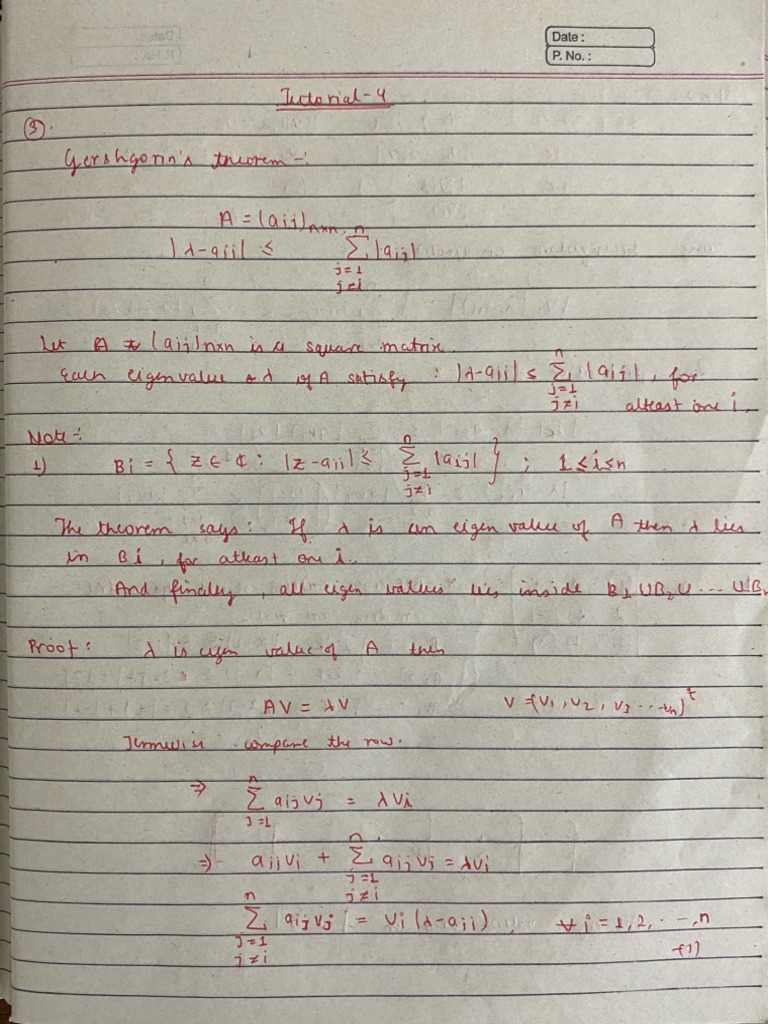 Date :
P. No. :
Tutorial-4
③.
Gershgorin's theorem -:
A = (aij)n×n
|λ-aii| ≤ n∑j=1 j≠i |aij|
Let A = (aij)n×n is a square matrix.
Each eigen value λ of A satisfy : |λ-aii| ≤ n∑j=1 j≠i |aij|, for
atleast one i.
Note :-
1) Bi = { z ∈ ¢ : |z-aii| ≤ n∑j=1 j≠i |aij| } ; 1 ≤ i ≤ n
The theorem says : If λ is an eigen value of A then λ lies
in Bi, for atleast one i..
And finally, all eigen values lies inside B1 UB2U ... UBn
Proof : λ is eigen value of A then
AV = λV V = (v1, v2, v3 ... vn)t
Termwise compare the row.
⇒ n∑j=1 aijvj = λvi
⇒ aiivi + n∑j=1 j≠i aijvj = λvi
n∑j=1 j≠i aijvj = vi(λ-aii), ∀ i = 1, 2, ... , n
-(1)